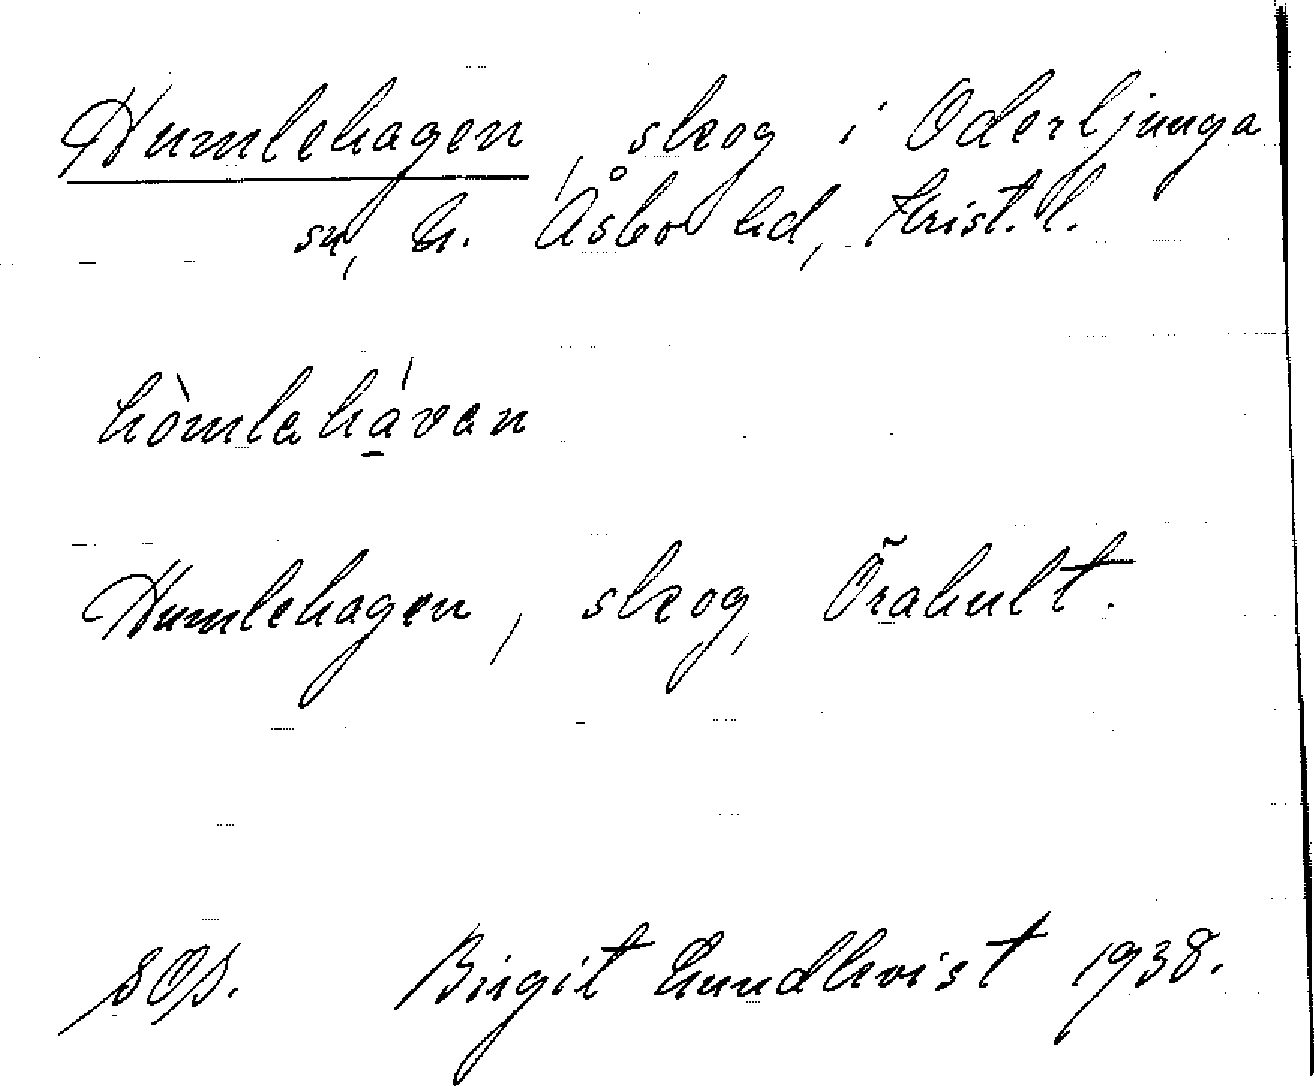 Humlehagen, skog i Oderljunga
sn, N. Åsbo hd, Krist. l.
hòmlahávan
Humlehagen, skog, Örahult.
SOS. Birgit Lundkvist 1938.